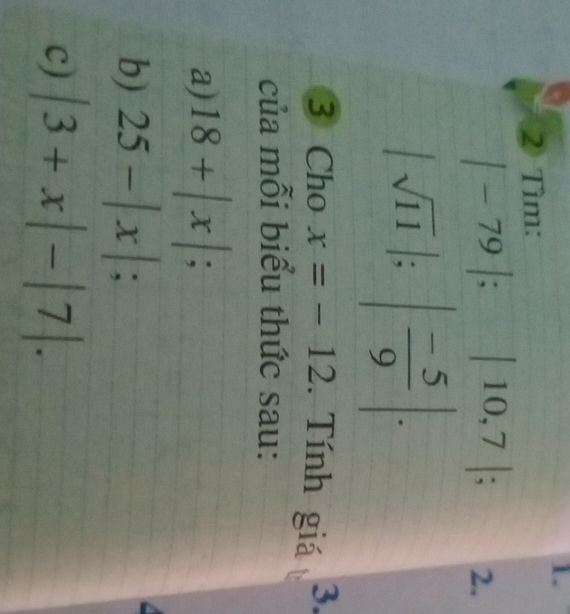 2 Tìm:
| – 79 |; | 10,7 |;
| √11 |; | −5/9 |.
3 Cho x = – 12. Tính giá
của mỗi biểu thức sau:
a) 18 + | x |;
b) 25 – | x |;
c) | 3 + x | – | 7 |.
1.
2.
3.
4